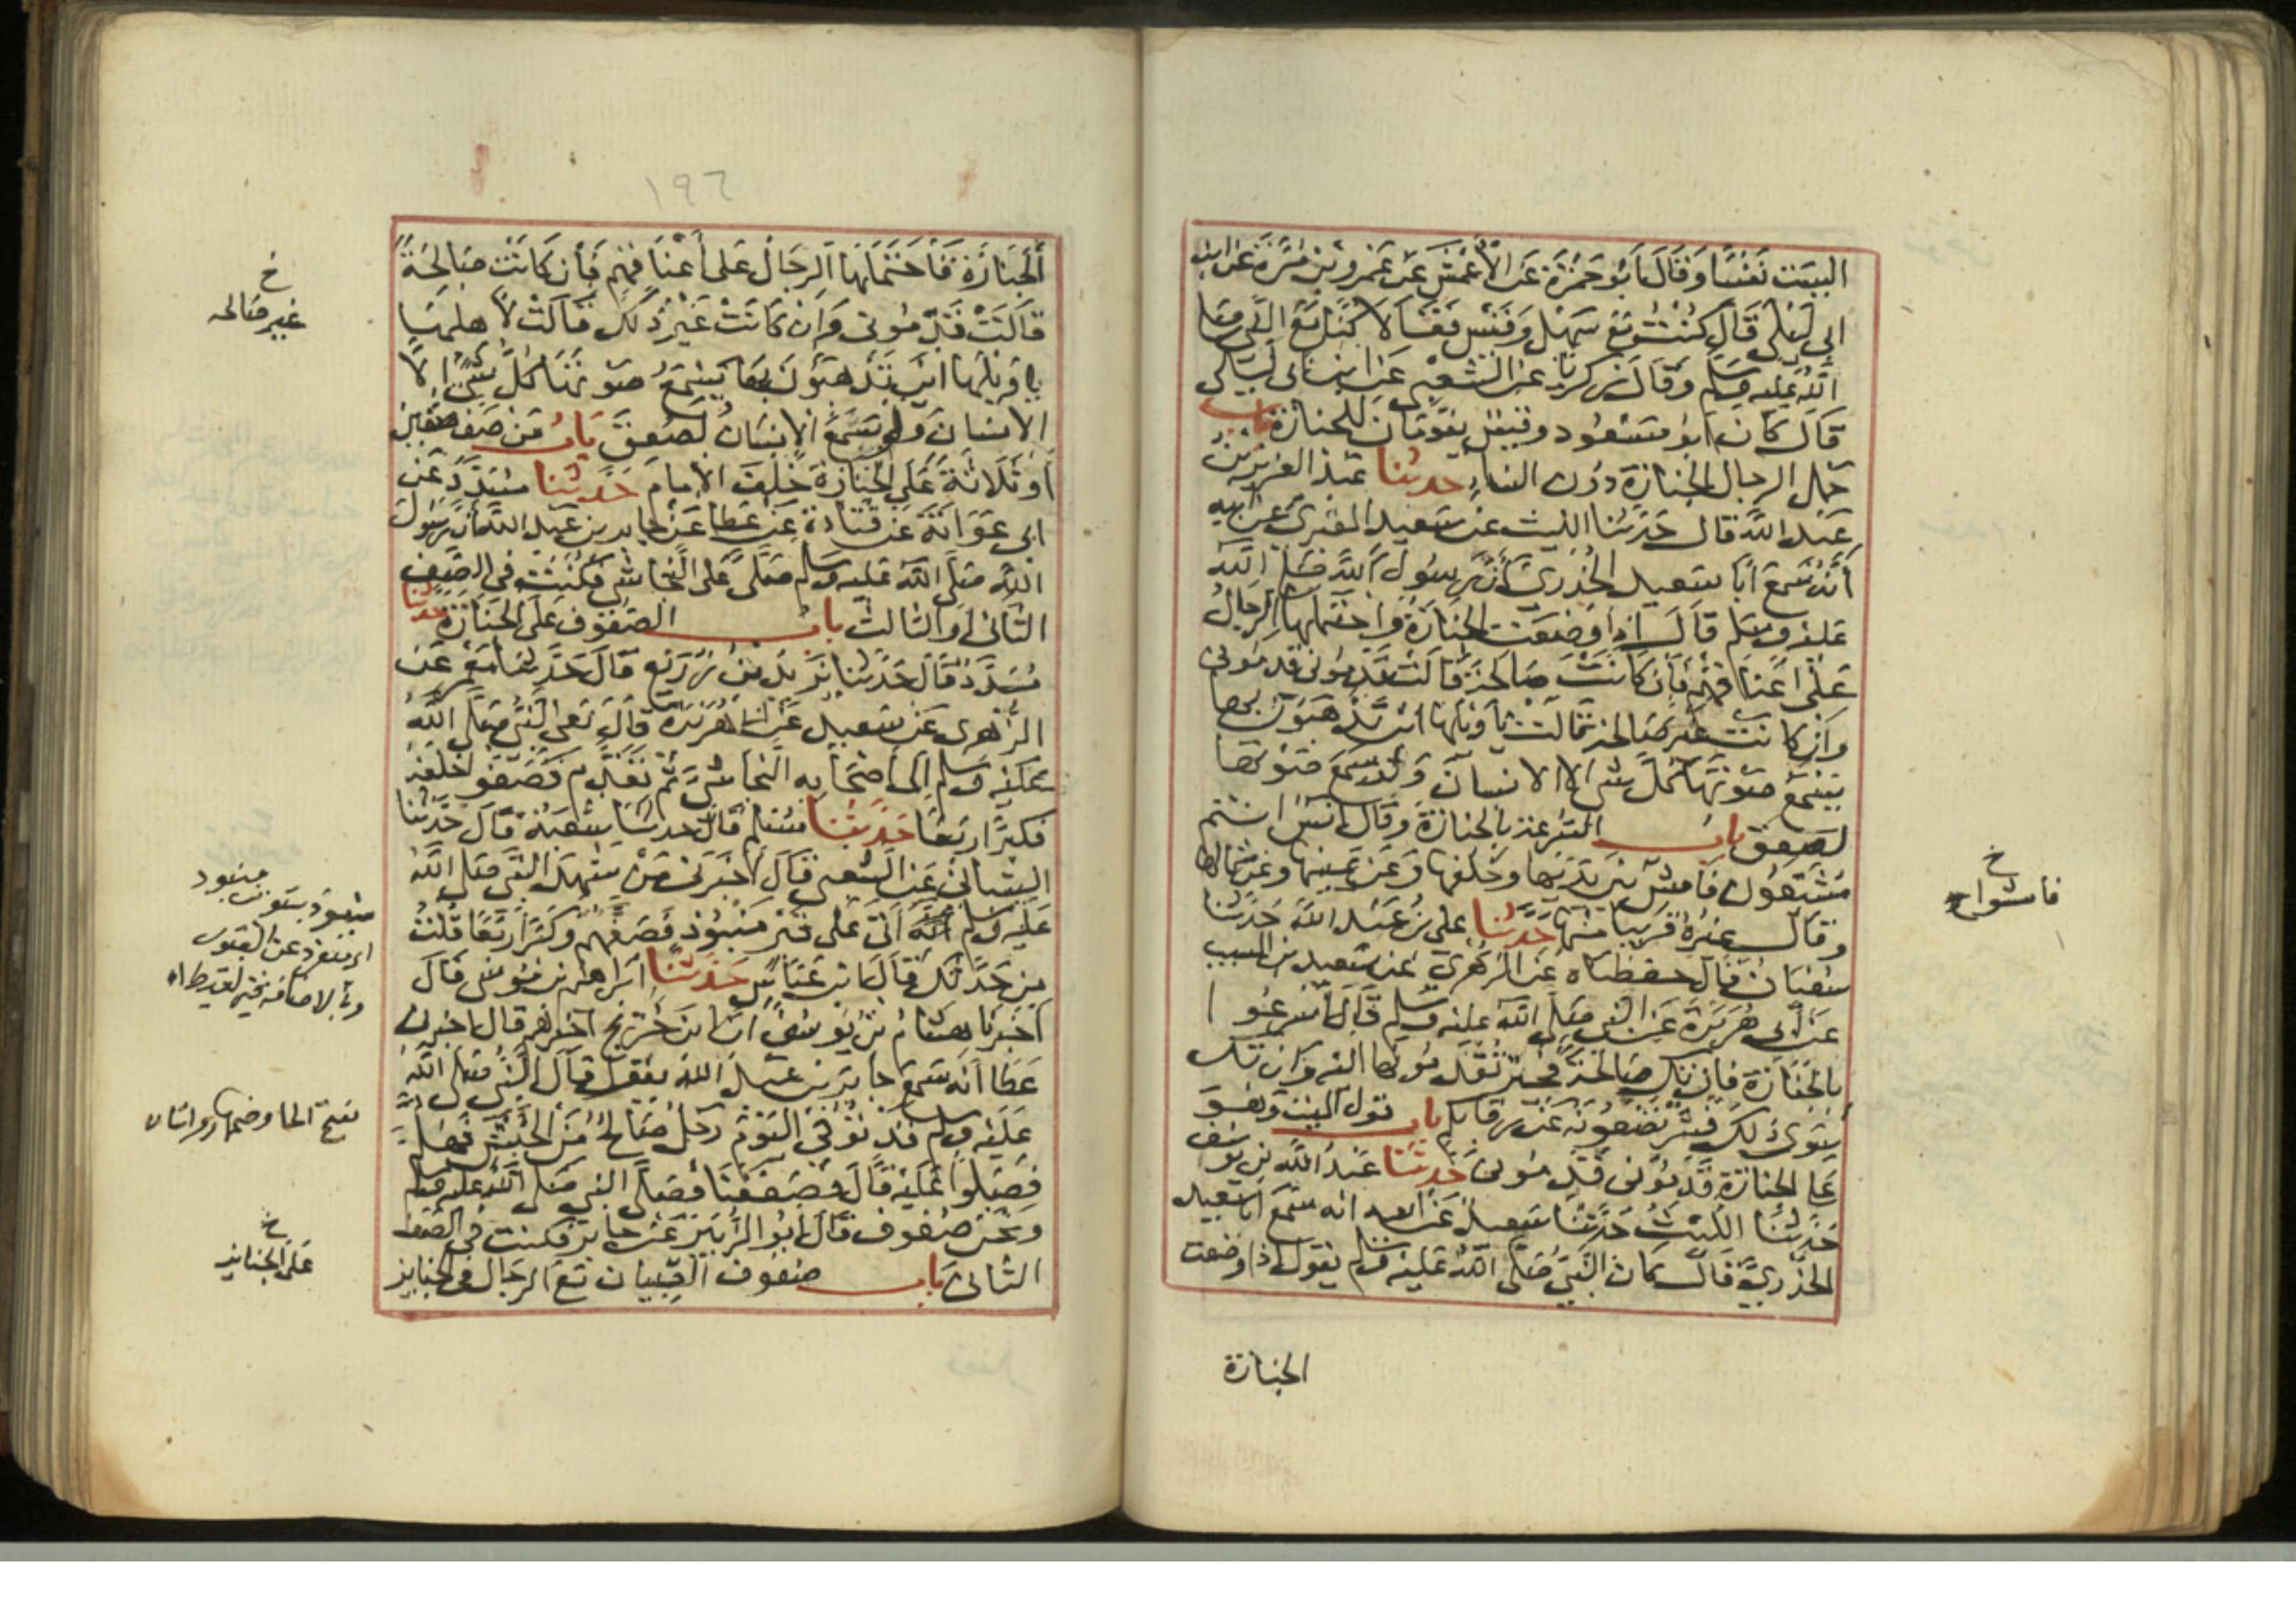 اليست نفسا وقال ابو حمزة عن الاعمش عن عمرو بن مرة عن ابن
ابي ليلى قال كنت مع سهل وقيس فقالا كنا مع النبي صلى
الله عليه وسلم وقال زكريا عن الشعبي عن ابن ابي ليلى
قال كان ابو مسعود وقيس يقومان للجنازة باب
حمل الرجال الجنازة دون النساء حدثنا عبد العزيز بن
عبد الله قال حدثنا الليث عن سعيد المقبري عن ابيه
أنه سمع ابا سعيد الخدري أن رسول الله صلى الله
عليه وسلم قال اذا وضعت الجنازة واحتملها الرجال
على اعناقهم فان كانت صالحة قالت قدموني قدموني
وان كانت غير صالحة قالت يا ويلها اين تذهبون بها
يسمع صوتها كل شي الا الانسان ولو سمع صوتها
لصعق باب السرعة بالجنازة وقال انس انتم
مشيعون فامش بين يديها وخلفها وعن يمينها وعن شمالها
وقال غيره قريبا منها حدثنا علي بن عبد الله حدثنا
سفيان قال حفظناه عن الزهري عن سعيد بن المسيب
عن أبي هريرة عن النبي صلى الله عليه وسلم قال أسرعوا
بالجنازة فان تك صالحة فخير تقدمونها اليه وان تك
سوى ذلك فشر تضعونه عن رقابكم باب قول الميت وهو
على الجنازة قدموني قدموني حدثنا عبد الله بن يوسف
حدثنا الليث حدثنا سعيد عن ابيه انه سمع ابا سعيد
الخدري قال كان النبي صلى الله عليه وسلم يقول اذا وضعت
الجنازة
خ
فامشوا
١٩٦
الجنازة فاحتملها الرجال على أعناقهم فأن كانت صالحة
قالت قدموني وان كانت غير ذلك قالت لاهلها
يا ويلها اين تذهبون بها يسمع صوتها كل شئ الا
الانسان ولو سمع الانسان لصعق باب من صف صفين
أو ثلاثة على الجنازة خلف الامام حدثنا مسدد عن
ابي عوانة عن قتادة عن عطا عن جابر بن عبد الله أن رسول
الله صلى الله عليه وسلم صلى على النجاشي فكنت في الصف
الثاني او الثالث باب الصفوف على الجنازة حدثنا
مسدد قال حدثنا يزيد بن زريع قال حدثنا معمر عن
الزهري عن سعيد عن ابي هريرة قال نعى النبي صلى الله
عليه وسلم الى اصحابه النجاشي ثم تقدم فصفوا خلفه
فكبر اربعا حدثنا مسلم قال حدثنا شعبة قال حدثنا
الشيباني عن الشعبي قال أخبرني من شهد النبي صلى الله
عليه وسلم أنه اتى على قبر منبوذ فصفهم وكبر اربعا قلت
من حدثك قال ابن عباس حدثنا ابراهيم بن موسى قال
اخبرنا هشام بن يوسف ان ابن جريج اخبرهم قال اخبرني
عطا انه سمع جابر بن عبد الله يقول قال النبي صلى الله
عليه وسلم قد توفي اليوم رجل صالح من الحبش فهلم
فصلوا عليه قال فصففنا فصلى النبي صلى الله عليه وسلم
ونحن صفوف قال ابو الزبير عن جابر فكنت في الصف
الثاني باب صفوف الصبيان مع الرجال في الجنايز
خ
غير صالحه
منبوذ
اي منفرد عن القبور
بفتح الحا وضمها
خ
على الجنايز